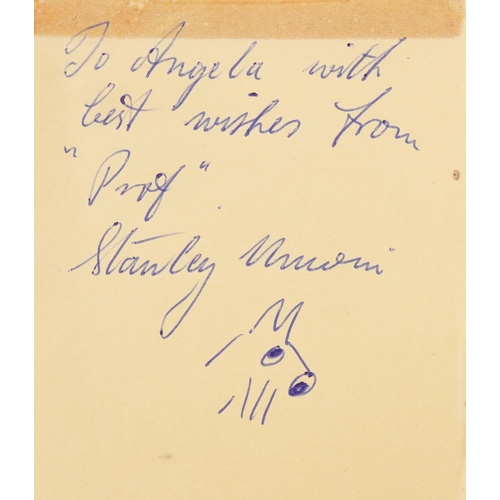 To Angela with
best wishes from
"Prof"
Stanley Unwin